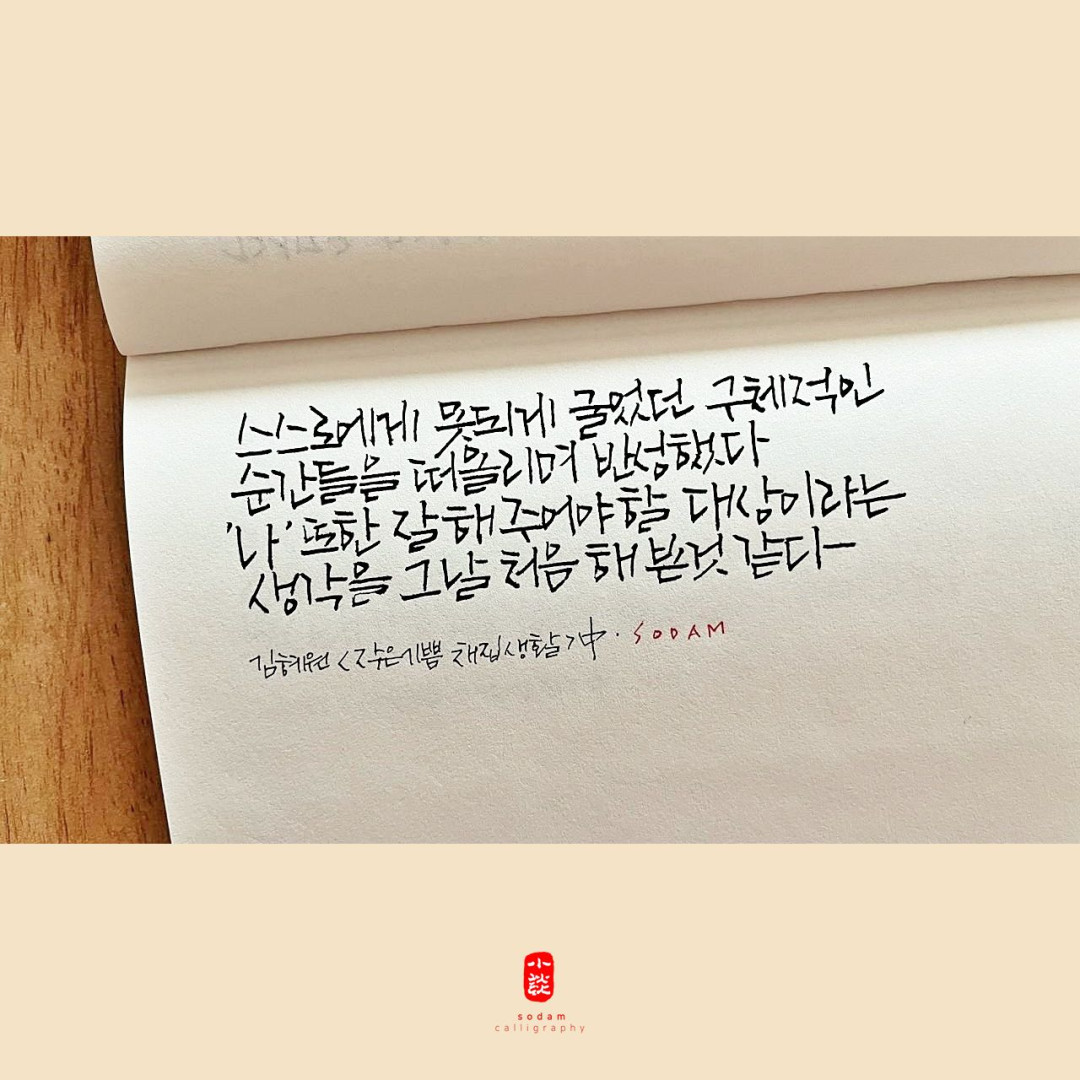 스스로에게 못되게 굴었던 구체적인
순간들을 떠올리며 반성했다
'나' 또한 잘해주어야할 대상이라는
생각을 그날 처음 해본것 같다-
김혜원 <작은기쁨 채집생활>中 · SODAM
小談
sodam
calligraphy